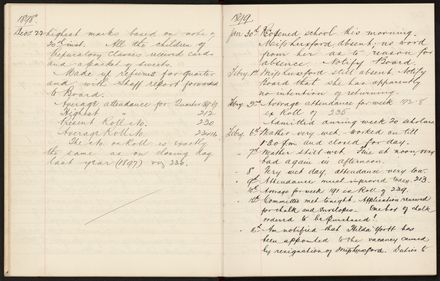 1898.
Dec. 22 highest marks based on note of
20th inst. All the children of
Preparatory Classes received cards
and a packet of sweets.
Made up returns for quarter
and with Staff report forwarded
to Board.
Average attendance for December
Highest 212
Present Roll No. 220
Average Roll No.
The No. on Roll is exactly
the same as on closing day
last year (1897) viz 220.
1899.
Jan 30th Reopened school this morning.
Miss Hungerford absent; no word
from her as to reason for
absence. Notify Board.
Feby 1st Miss Hungerford still absent. Notify
Board that she has apparently
no intention of returning.
Feby. 3rd Average attendance for week 172.8
ex Roll of 225
Admitted during week 20 scholars
Feby. 6th Wather very wet. Worked on till
1.30 pm and closed for day.
7th Wather still wet. Fine at noon, very
bad again in afternoon.
8 Very wet day, attendance very low.
9th Attendance much improved today. 213.
Average for week 191 ex Roll of 229.
Committee met tonight. Application received
for chalk and envelopes. One box of chalk
ordered to be purchased!
Am notified that Hilda has
been appointed to the vacancy caused
by resignation of Miss Hungerford. Duties to